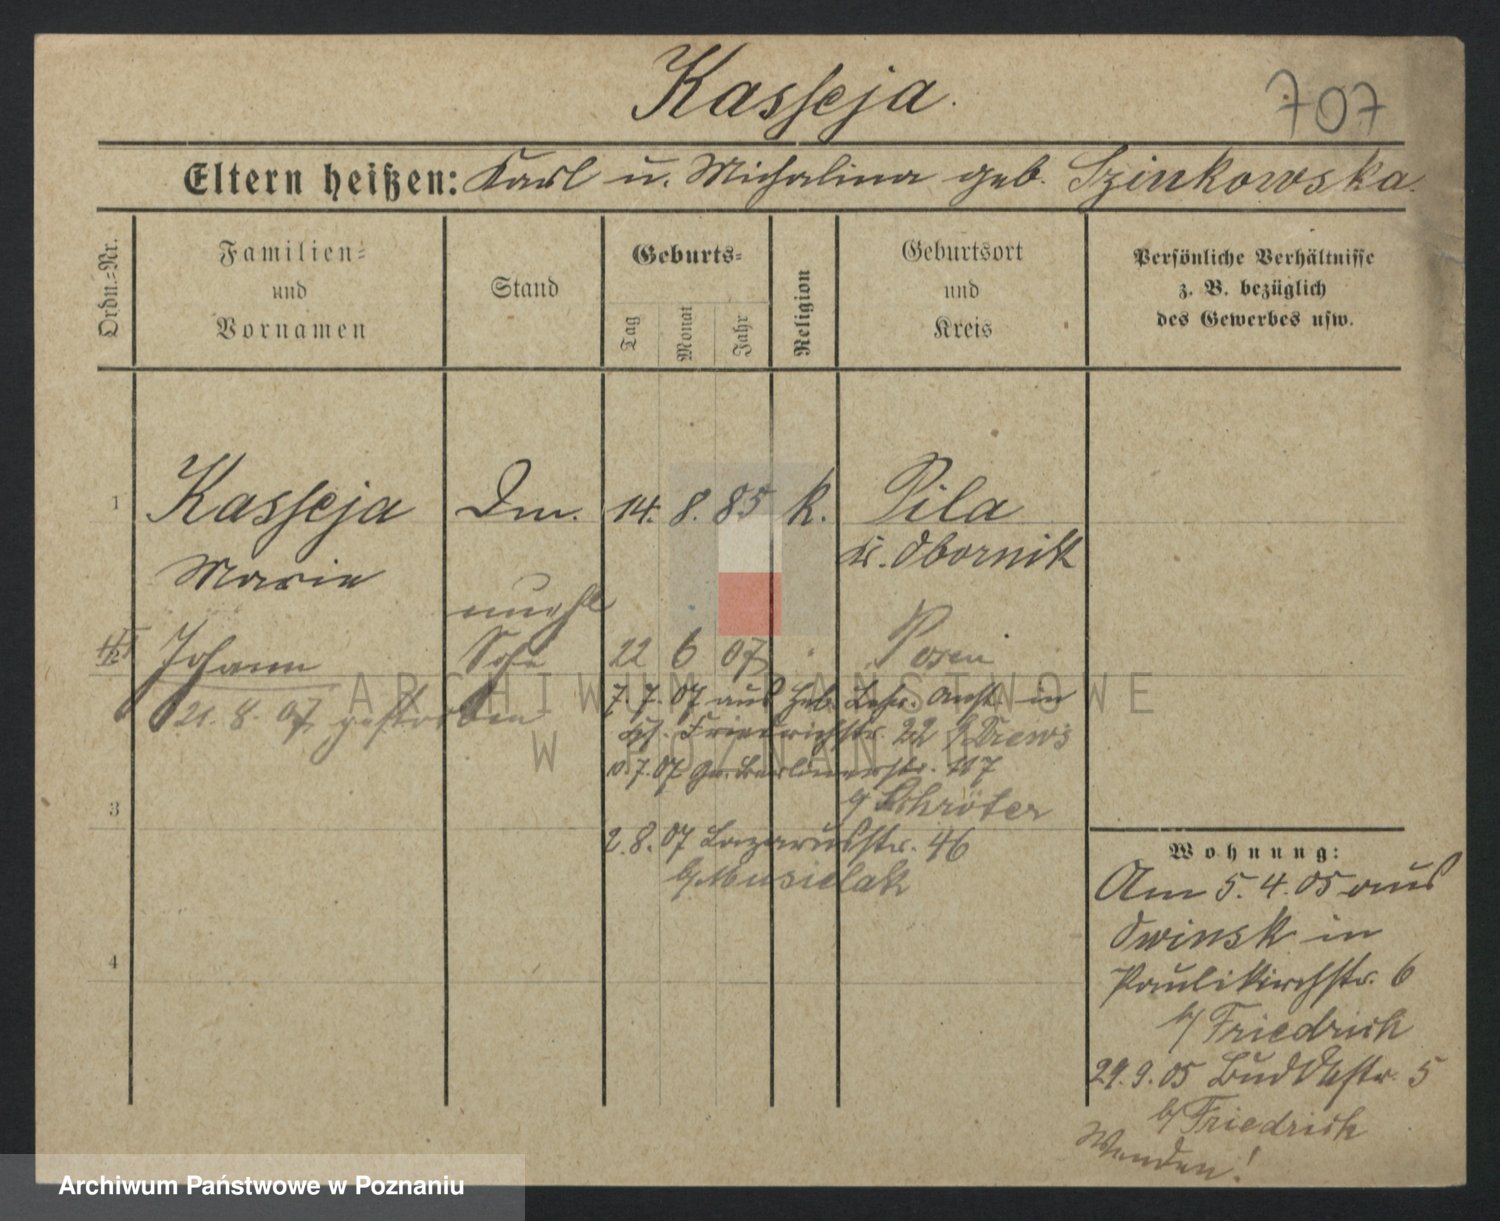 Kasseja.
707
Eltern heißen: Karl u. Michalina geb. Szinkowska.
Ordn.-Nr.
Familien- und Vornamen
Stand
Geburts-
Tag
Monat
Jahr
Religion
Geburtsort und Kreis
Persönliche Verhältnisse
z. B. bezüglich
des Gewerbes usw.
1 Kasseja Dm. 14. 8. 85 k. Pila
Marie Kr. Obornik
unehl
1/2 Johann Sohn 22 6 07 Posen
21. 8. 07 gestorben
7. 7. 07 aus Heb. Lehr. Anst. in
Friedrichstr. 22 b/ Drews
10. 7. 07 Gr. Berlinerstr. 117
b/ Schröter
3
2. 8. 07 Lazarusstr. 46
b/ Musielak
4
Wohnung:
Am 5. 4. 05 aus
Owinsk in
Paulikirchstr. 6
b/ Friedrich
29. 9. 05 Buddestr. 5
b/ Friedrich
Wenden!
ARCHIWUM PAŃSTWOWE
W POZNANIU
Archiwum Państwowe w Poznaniu